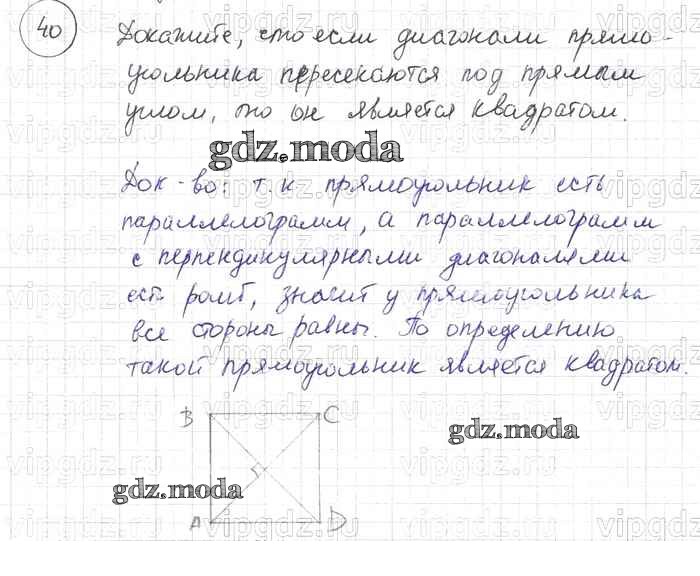 40
Докажите, что если диагонали прямо-
угольника пересекаются под прямым
углом, то он является квадратом.
gdz.moda
Док-во: т.к прямоугольник есть
параллелограмм, а параллелограмм
с перпендикулярными диагоналями
есть ромб, значит у прямоугольника
все стороны равны. По определению
такой прямоугольник является квадратом.
B C
gdz.moda
gdz.moda
A D